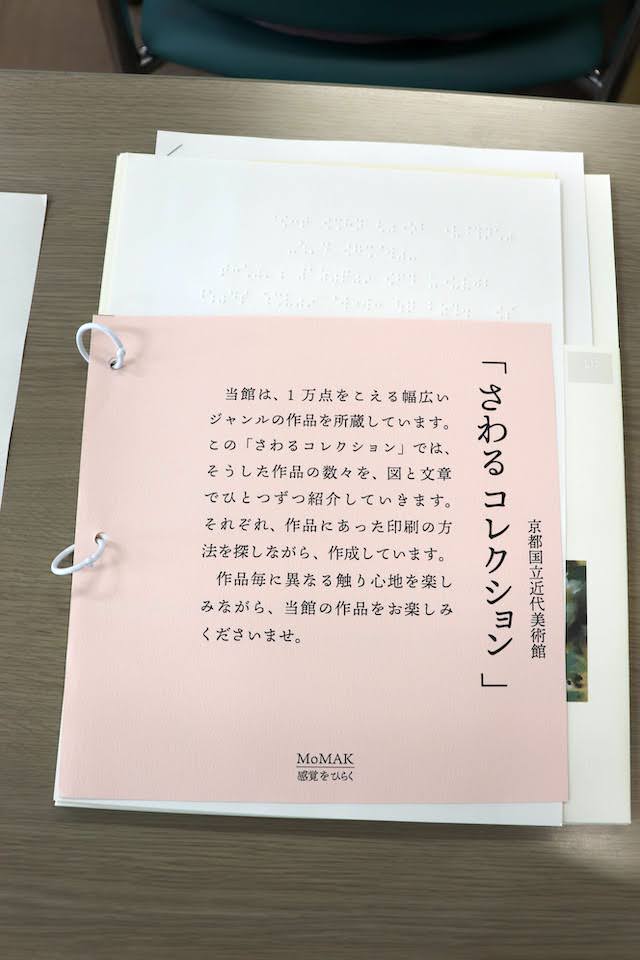 「さわるコレクション」
京都国立近代美術館
当館は、1万点をこえる幅広い
ジャンルの作品を所蔵しています。
この「さわるコレクション」では、
そうした作品の数々を、図と文章
でひとつずつ紹介していきます。
それぞれ、作品にあった印刷の方
法を探しながら、作成しています。
作品毎に異なる触り心地を楽し
みながら、当館の作品をお楽しみ
くださいませ。
MoMAK
感覚をひらく